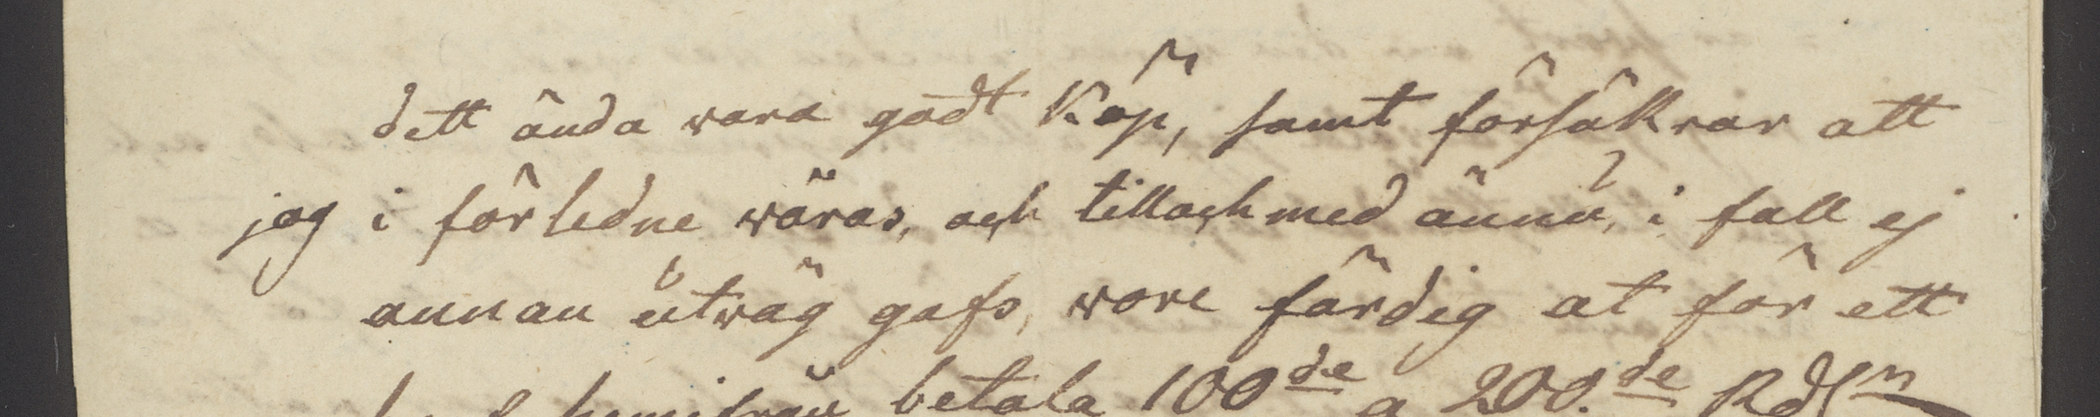 dett ända vara godt Köp, samt försäkrar att
jag i förledne våras, och tilloch med ännu, i fall ej
annan utväg gafs, vore färdig at för ett
hemifrån betala 100de a 200.de Rdlr